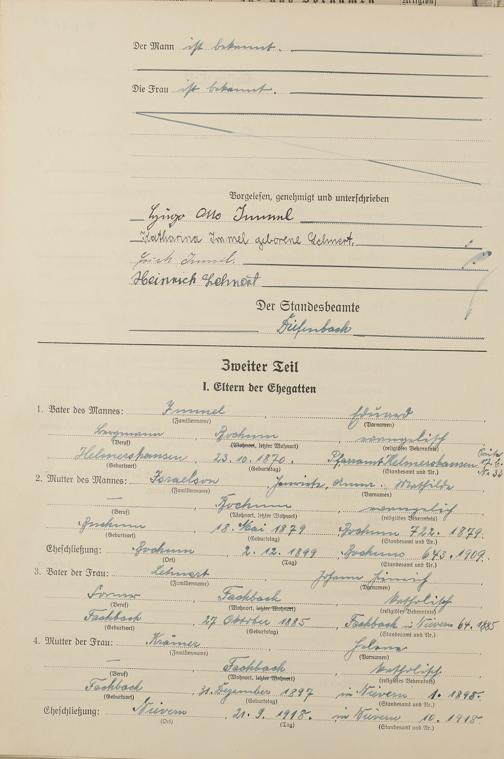 Der Mann ist bekannt.
Die Frau ist bekannt.
Vorgelesen, genehmigt und unterschrieben
Hugo Otto Immel
Katharina Immel geborene Lehnert.
Erich Immel.
Heinrich Lehnert
Der Standesbeamte
Diefenbach
Zweiter Teil
I. Eltern der Ehegatten
1. Vater des Mannes: Immel Eduard
(Familienname) (Vornamen)
Bergmann, Bochum, evangelisch
(Beruf) (Wohnort, letzter Wohnort) (religiöses Bekenntnis)
Helmershausen 23.10.1870. Pfarramt Helmershausen
(Geburtsort) (Geburtstag) (Standesamt und Nr.)
2. Mutter des Mannes: Israelson Mathilde
(Familienname) (Vornamen)
— Bochum evangelisch
(Beruf) (Wohnort, letzter Wohnort) (religiöses Bekenntnis)
Bochum 18. Mai 1879 Bochum 732. 1879.
(Geburtsort) (Geburtstag) (Standesamt und Nr.)
Eheschließung: Bochum 2.12.1899 Bochum 1909.
(Ort) (Tag) (Standesamt und Nr.)
3. Vater der Frau: Lehnert Johann Heinrich
(Familienname) (Vornamen)
Former, Fachbach katholisch
(Beruf) (Wohnort, letzter Wohnort) (religiöses Bekenntnis)
Fachbach 27 Oktober 1885 Fachbach in Nievern 64. 1885
(Geburtsort) (Geburtstag) (Standesamt und Nr.)
4. Mutter der Frau: Krämer Helene
(Familienname) (Vornamen)
— Fachbach katholisch
(Beruf) (Wohnort, letzter Wohnort) (religiöses Bekenntnis)
Fachbach 31. Dezember 1897 in Nievern 1. 1898.
(Geburtsort) (Geburtstag) (Standesamt und Nr.)
Eheschließung: Nievern 21.9.1918. in Nievern 10. 1918
(Ort) (Tag) (Standesamt und Nr.)